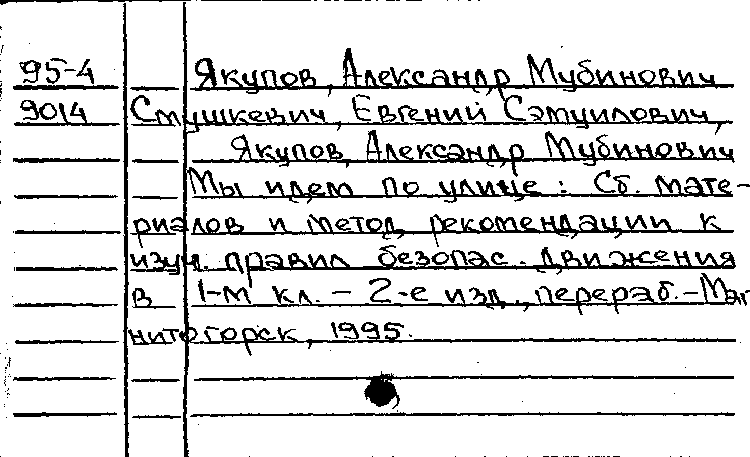 95-4 Якупов, Александр Мубинович
9014 Смушкевич, Евгений Сэмуилович,
Якупов, Александр Мубинович
Мы идем по улице : Сб. мате-
риалов и метод. рекомендации к
изуч. правил безопас. движения
в 1-м кл. – 2-е изд., перераб. – Маг
нитогорск, 1995.